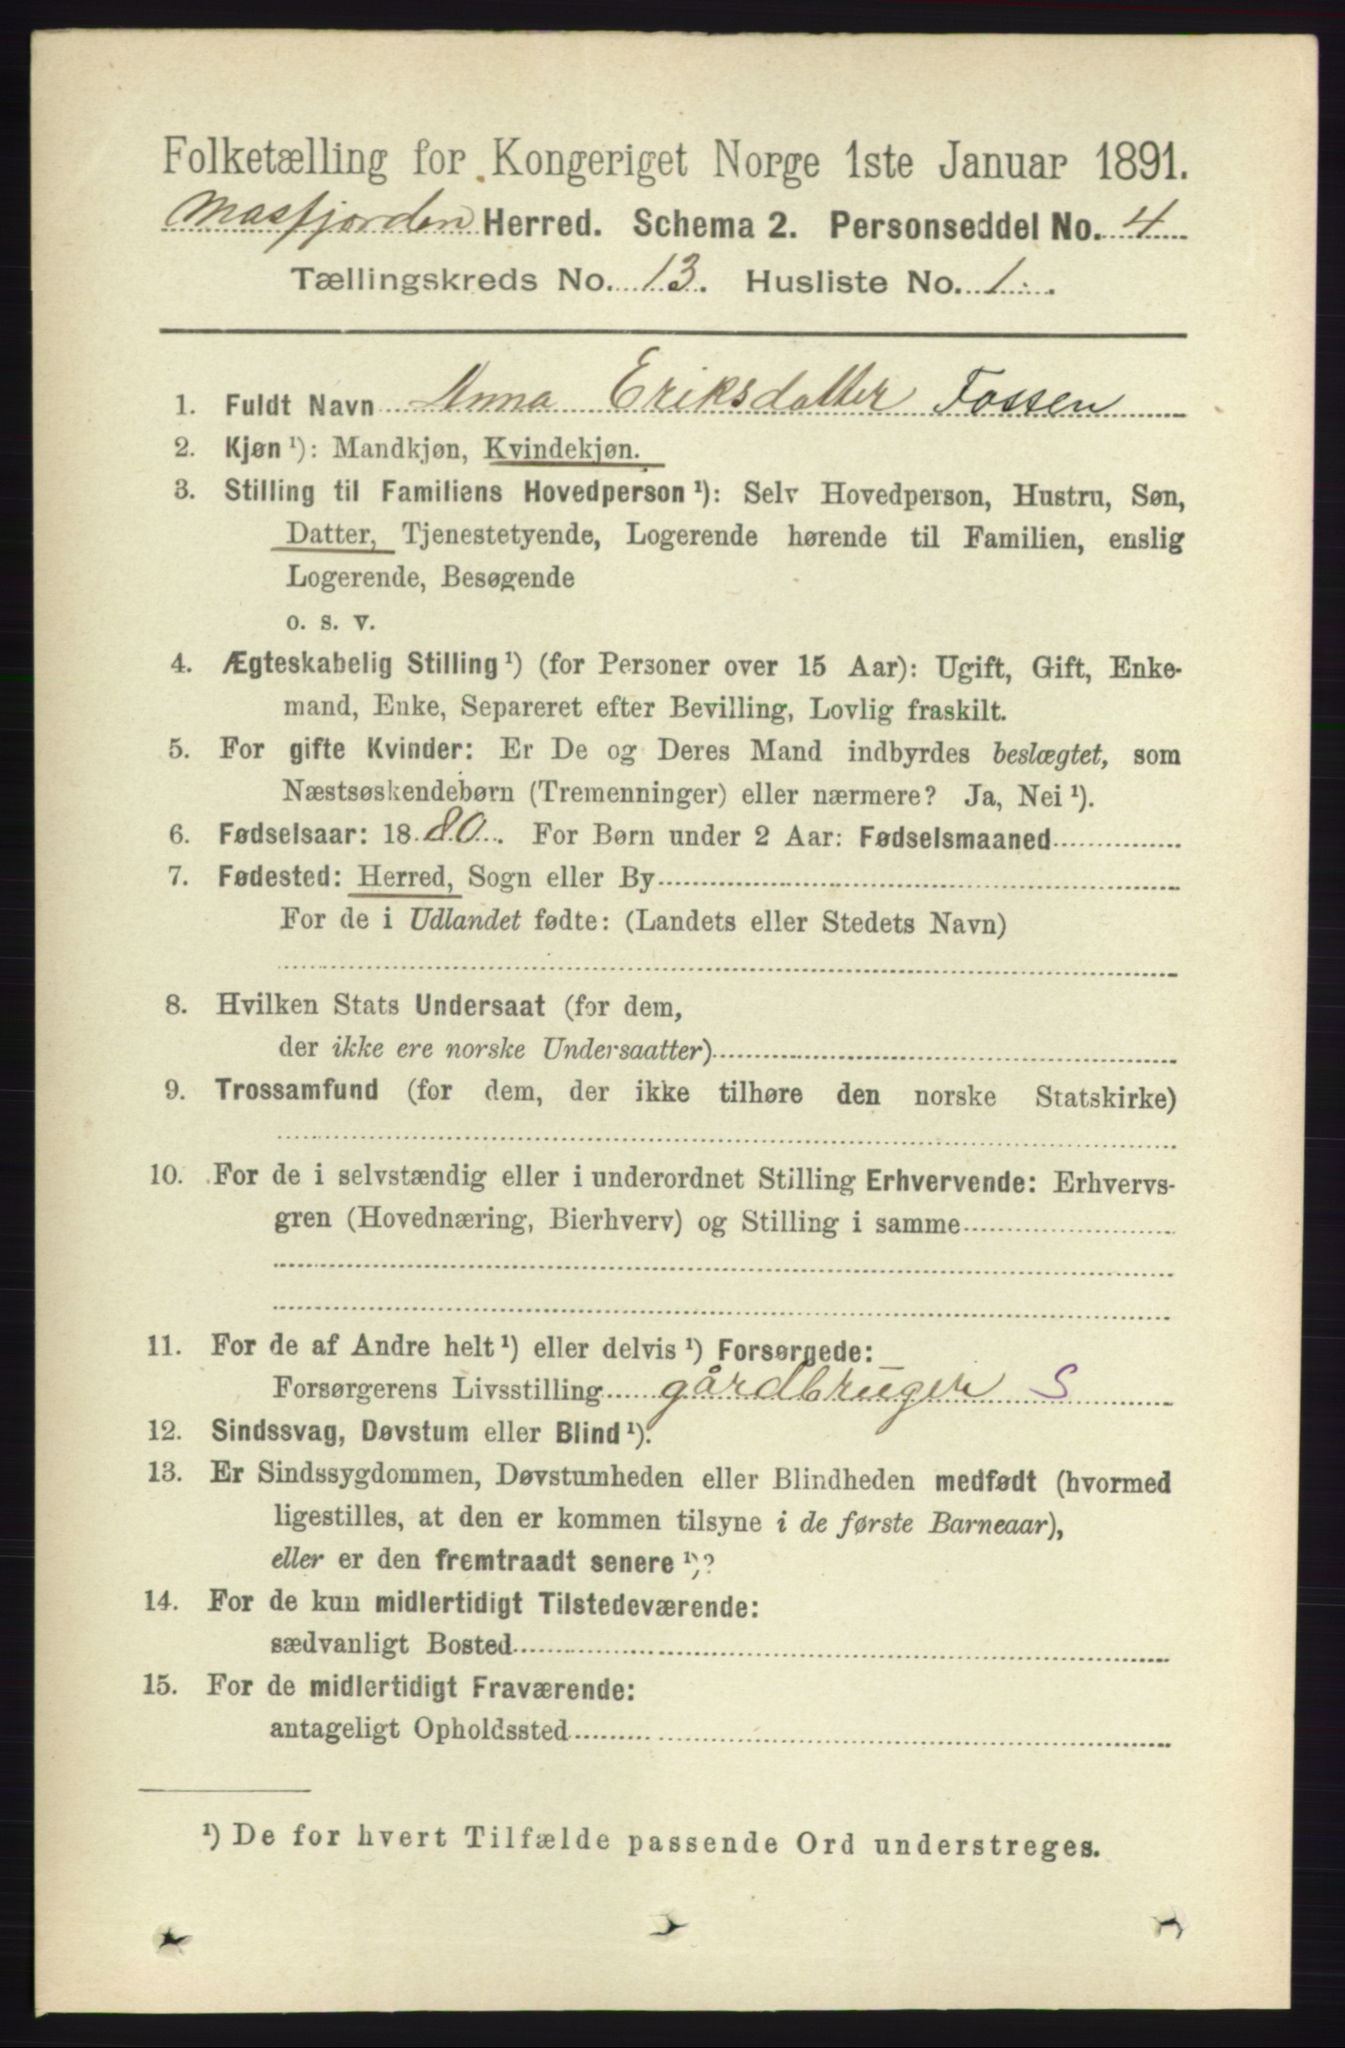 Folketælling for Kongeriget Norge 1ste Januar 1891.
Masfjorden Herred. Schema 2. Personseddel No. 4
Tællingskreds No. 13. Husliste No. 1.
1. Fuldt Navn Anna Eriksdatter Fossen
2. Kjøn ¹): Mandkjøn, Kvindekjøn.
3. Stilling til Familiens Hovedperson ¹): Selv Hovedperson, Hustru, Søn,
Datter, Tjenestetyende, Logerende hørende til Familien, enslig
Logerende, Besøgende
o. s. v.
4. Ægteskabelig Stilling ¹) (for Personer over 15 Aar): Ugift, Gift, Enke-
mand, Enke, Separeret efter Bevilling, Lovlig fraskilt.
5. For gifte Kvinder: Er De og Deres Mand indbyrdes beslægtet, som
Næstsøskendebørn (Tremenninger) eller nærmere? Ja, Nei ¹).
6. Fødselsaar: 1880. For Børn under 2 Aar: Fødselsmaaned
7. Fødested: Herred, Sogn eller By
For de i Udlandet fødte: (Landets eller Stedets Navn)
8. Hvilken Stats Undersaat (for dem,
der ikke ere norske Undersaatter)
9. Trossamfund (for dem, der ikke tilhøre den norske Statskirke)
10. For de i selvstændig eller i underordnet Stilling Erhvervende: Erhvervs-
gren (Hovednæring, Bierhverv) og Stilling i samme
11. For de af Andre helt ¹) eller delvis ¹) Forsørgede:
Forsørgerens Livsstilling gårdbruger S
12. Sindssvag, Døvstum eller Blind ¹).
13. Er Sindssygdommen, Døvstumheden eller Blindheden medfødt (hvormed
ligestilles, at den er kommen tilsyne i de første Barneaar),
eller er den fremtraadt senere ¹)?
14. For de kun midlertidigt Tilstedeværende:
sædvanligt Bosted
15. For de midlertidigt Fraværende:
antageligt Opholdssted
¹) De for hvert Tilfælde passende Ord understreges.